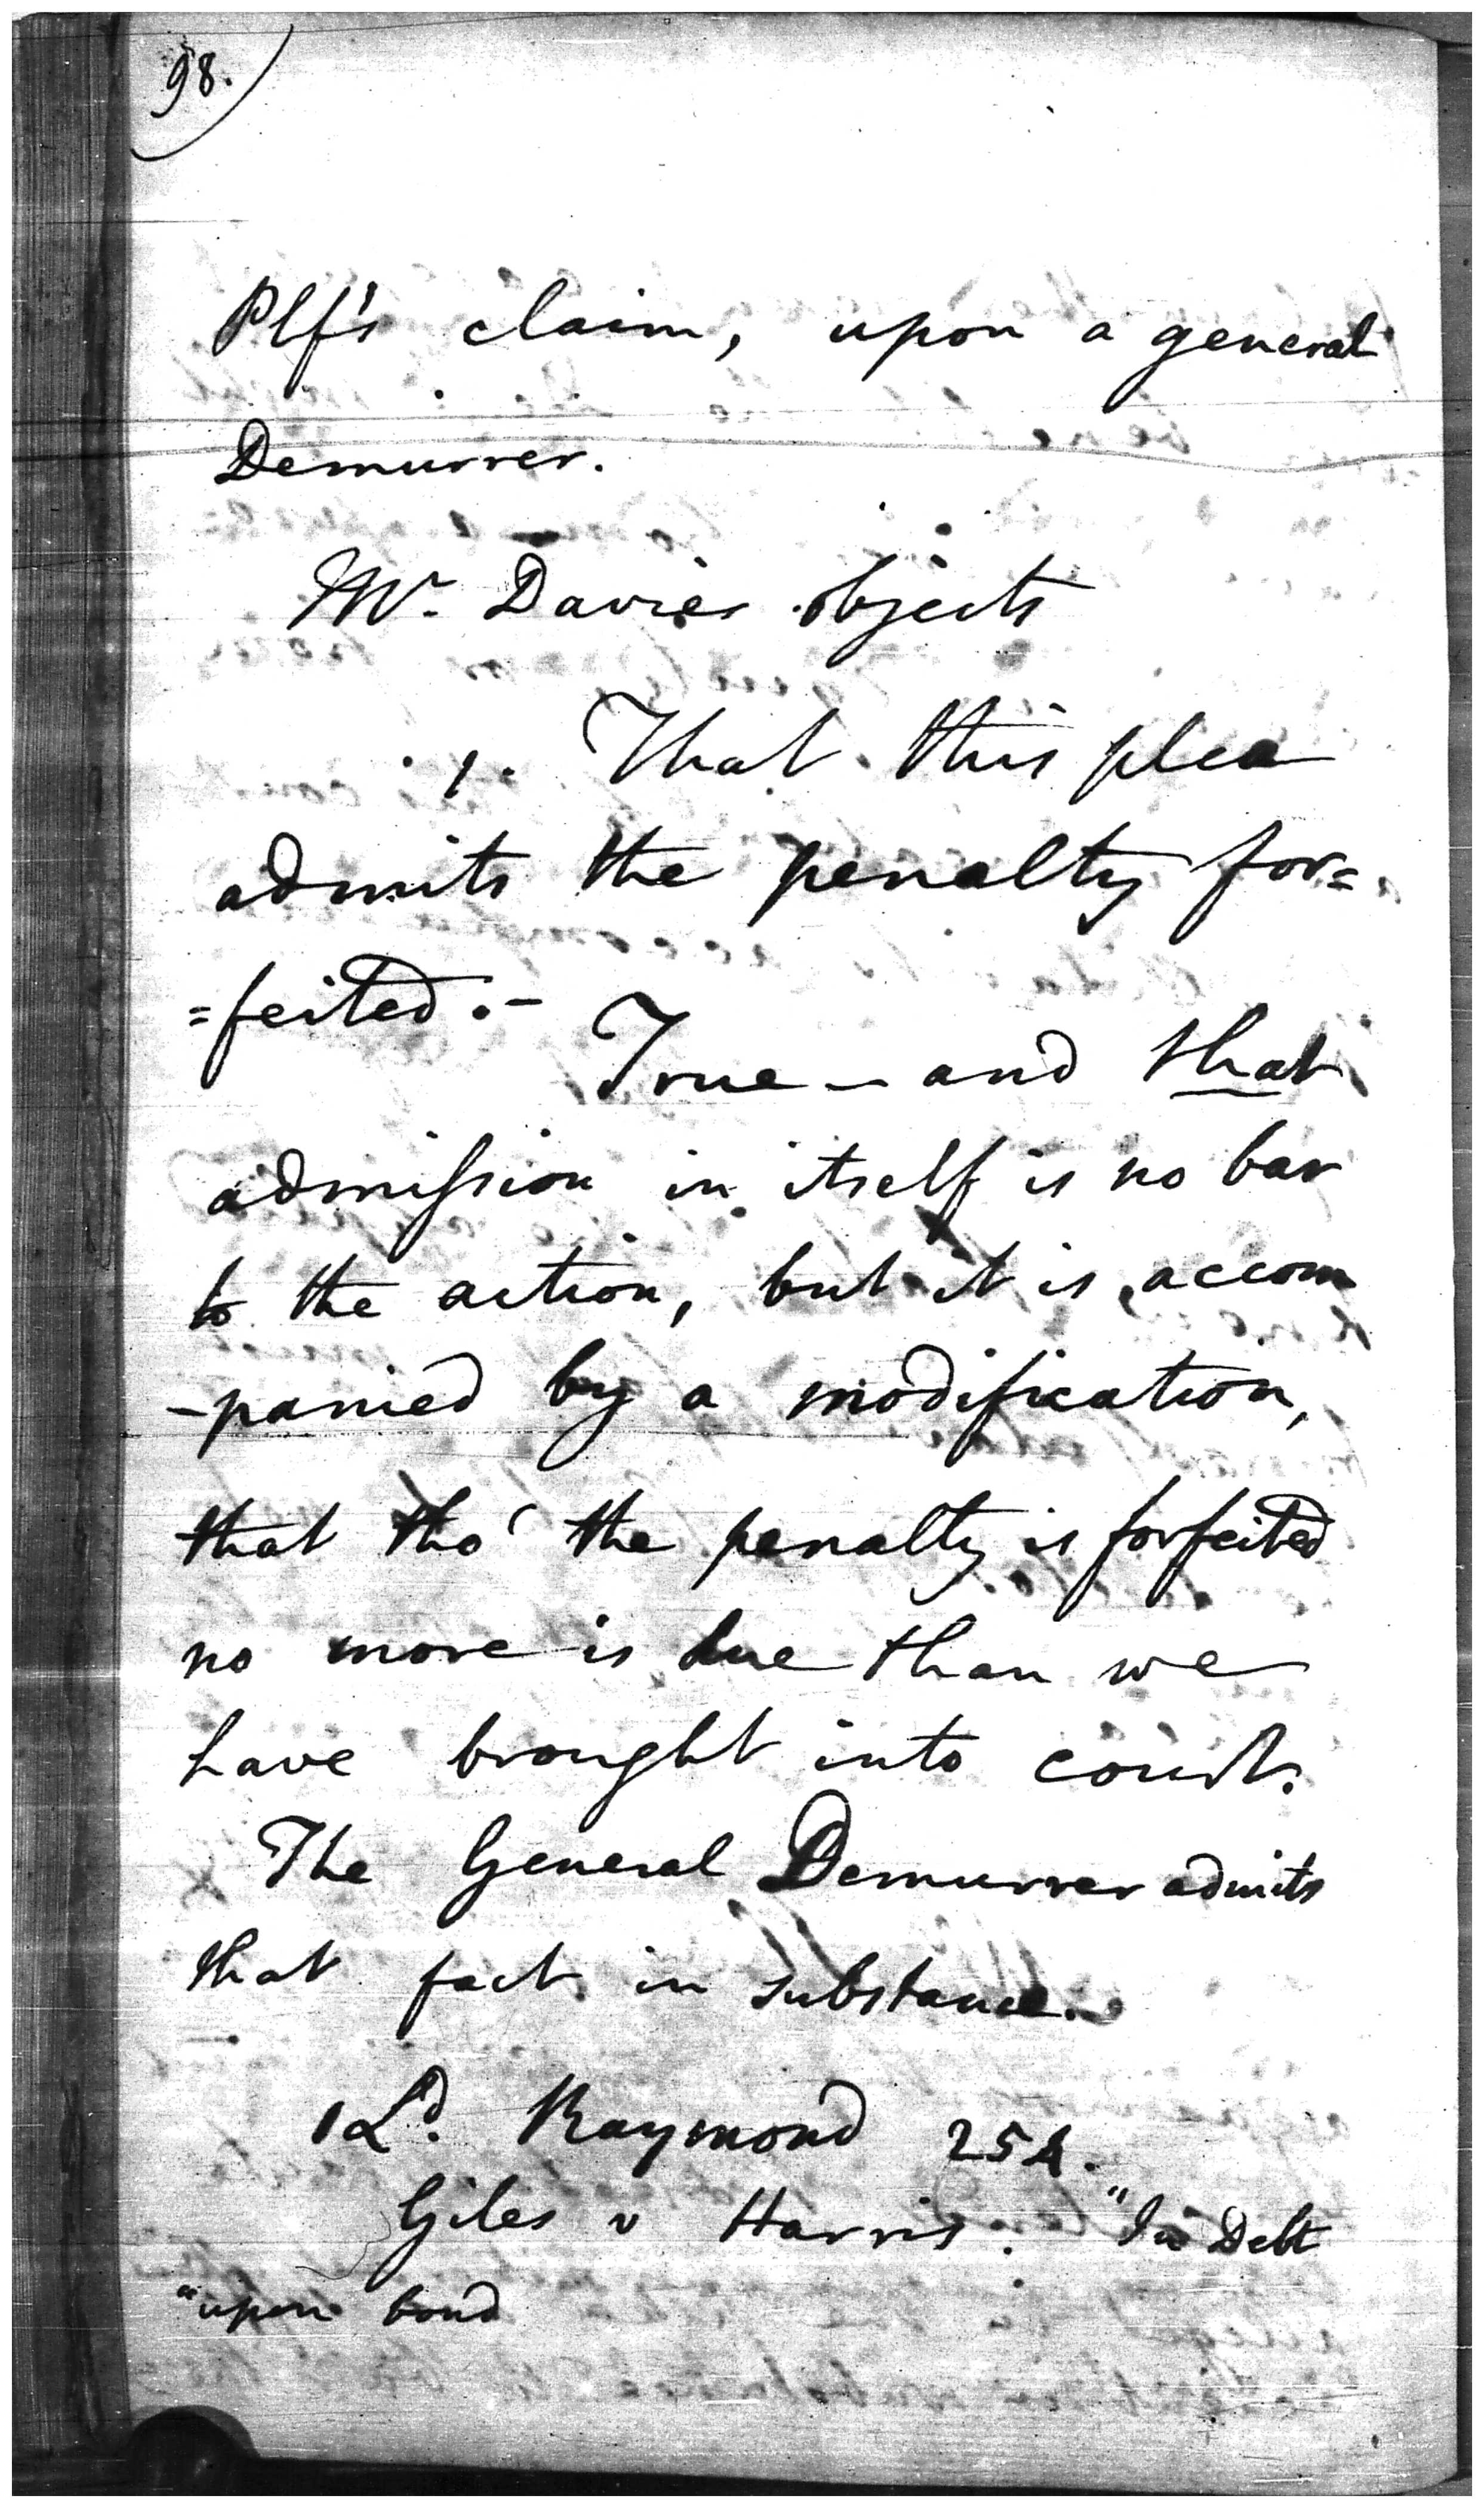 98.
Plf's claim, upon a general
Demurrer.
Mr. Davies objects
1. That this plea
admits the penalty for=
=feited.-
True - and that
admission in itself is no bar
to the action, but it is accom
-panied by a modification,
that tho' the penalty is forfeited
no more is due than we
have brought into court.
The General Demurrer admits
that fact in substance.
1 Ld. Raymond 254.
Giles v Harris. "In Debt
"upon bond